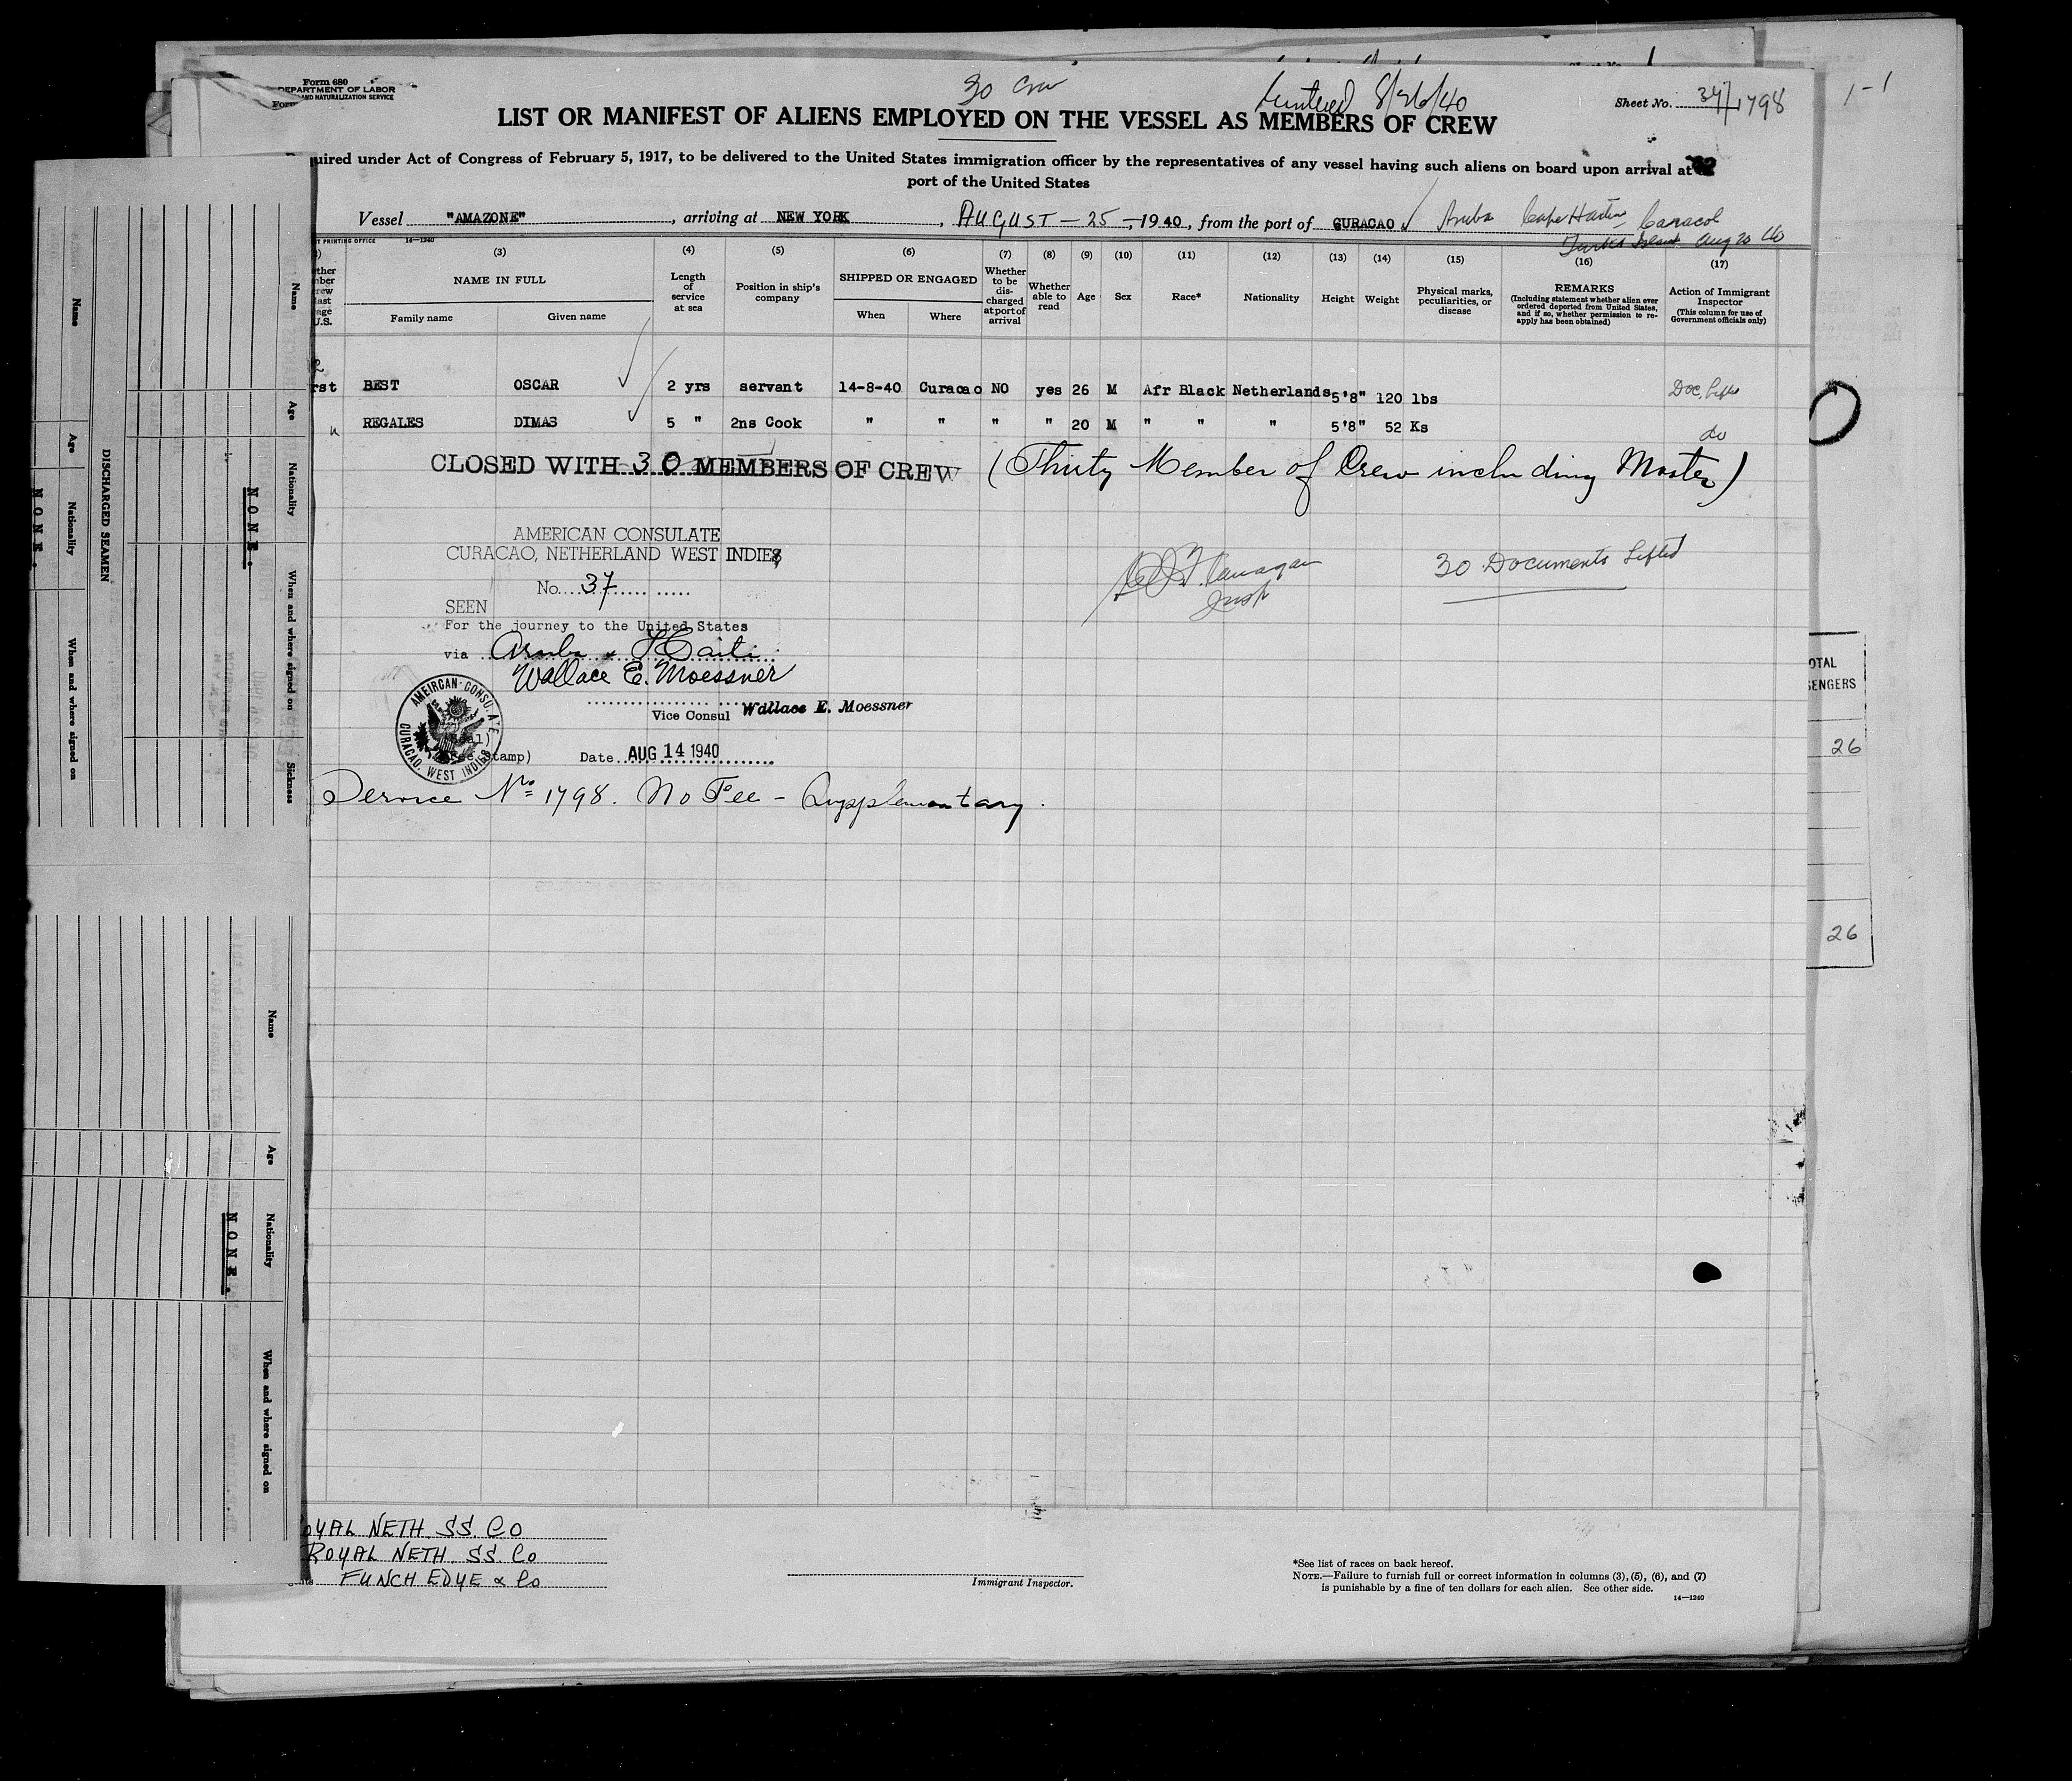 Form 680
DEPARTMENT OF LABOR
AND NATURALIZATION SERVICE
Form
30 Crew
8/26/40
Sheet No. 37/1798
1-1
LIST OR MANIFEST OF ALIENS EMPLOYED ON THE VESSEL AS MEMBERS OF CREW
uired under Act of Congress of February 5, 1917, to be delivered to the United States immigration officer by the representatives of any vessel having such aliens on board upon arrival at
port of the United States
Vessel "AMAZONE", arriving at NEW YORK, AUGUST - 25 -, 1940, from the port of CURACAO Aruba Cape Haitien Caracol
Turks Island Aug 20
T PRINTING OFFICE 14-1240
(3) (4) (5) (6) (7) (8) (9) (10) (11) (12) (13) (14) (15) (16) (17)
ther
mber
rew
last
age
U.S.
NAME IN FULL
Family name
Given name
Length
of
service
at sea
Position in ship's
company
SHIPPED OR ENGAGED
When
Where
Whether
to be
dis-
charged
at port of
arrival
Whether
able to
read
Age
Sex
Race*
Nationality
Height
Weight
Physical marks,
peculiarities, or
disease
REMARKS
(Including statement whether alien ever
ordered deported from United States,
and if so, whether permission to re-
apply has been obtained)
Action of Immigrant
Inspector
(This column for use of
Government officials only)
rst BEST OSCAR 2 yrs servant 14-8-40 Curacao NO yes 26 M Afr Black Netherlands 5'8" 120 lbs Doc. Lifted
REGALES DIMAS 5 " 2ns Cook " " " " 20 M " " " 5'8" 52 Ks do
CLOSED WITH 30 MEMBERS OF CREW (Thirty Member of Crew including Master)
AMERICAN CONSULATE
CURACAO, NETHERLAND WEST INDIES
No. 37
SEEN
For the journey to the United States
via Aruba & Haiti
Wallace E. Moessner
Vice Consul Wallace E. Moessner
AMEIRCAN CONSULATE
CURACAO, WEST INDIES
Date AUG 14 1940
Flanagan
Insp
30 Documents Lifted
Service No 1798. No Fee - Supplementary.
OTAL
SENGERS
26
26
Name
Age
Nationality
When and where signed on
NONE.
DISCHARGED SEAMEN
Name
Age
Nationality
When and where signed on
Sickness
NONE.
Name
Age
Nationality
When and where signed on
NONE.
OYAL NETH. SS. CO
ROYAL NETH. SS. Co
FUNCH EDYE & Co
Immigrant Inspector.
*See list of races on back hereof.
NOTE.—Failure to furnish full or correct information in columns (3), (5), (6), and (7)
is punishable by a fine of ten dollars for each alien. See other side.
14—1240